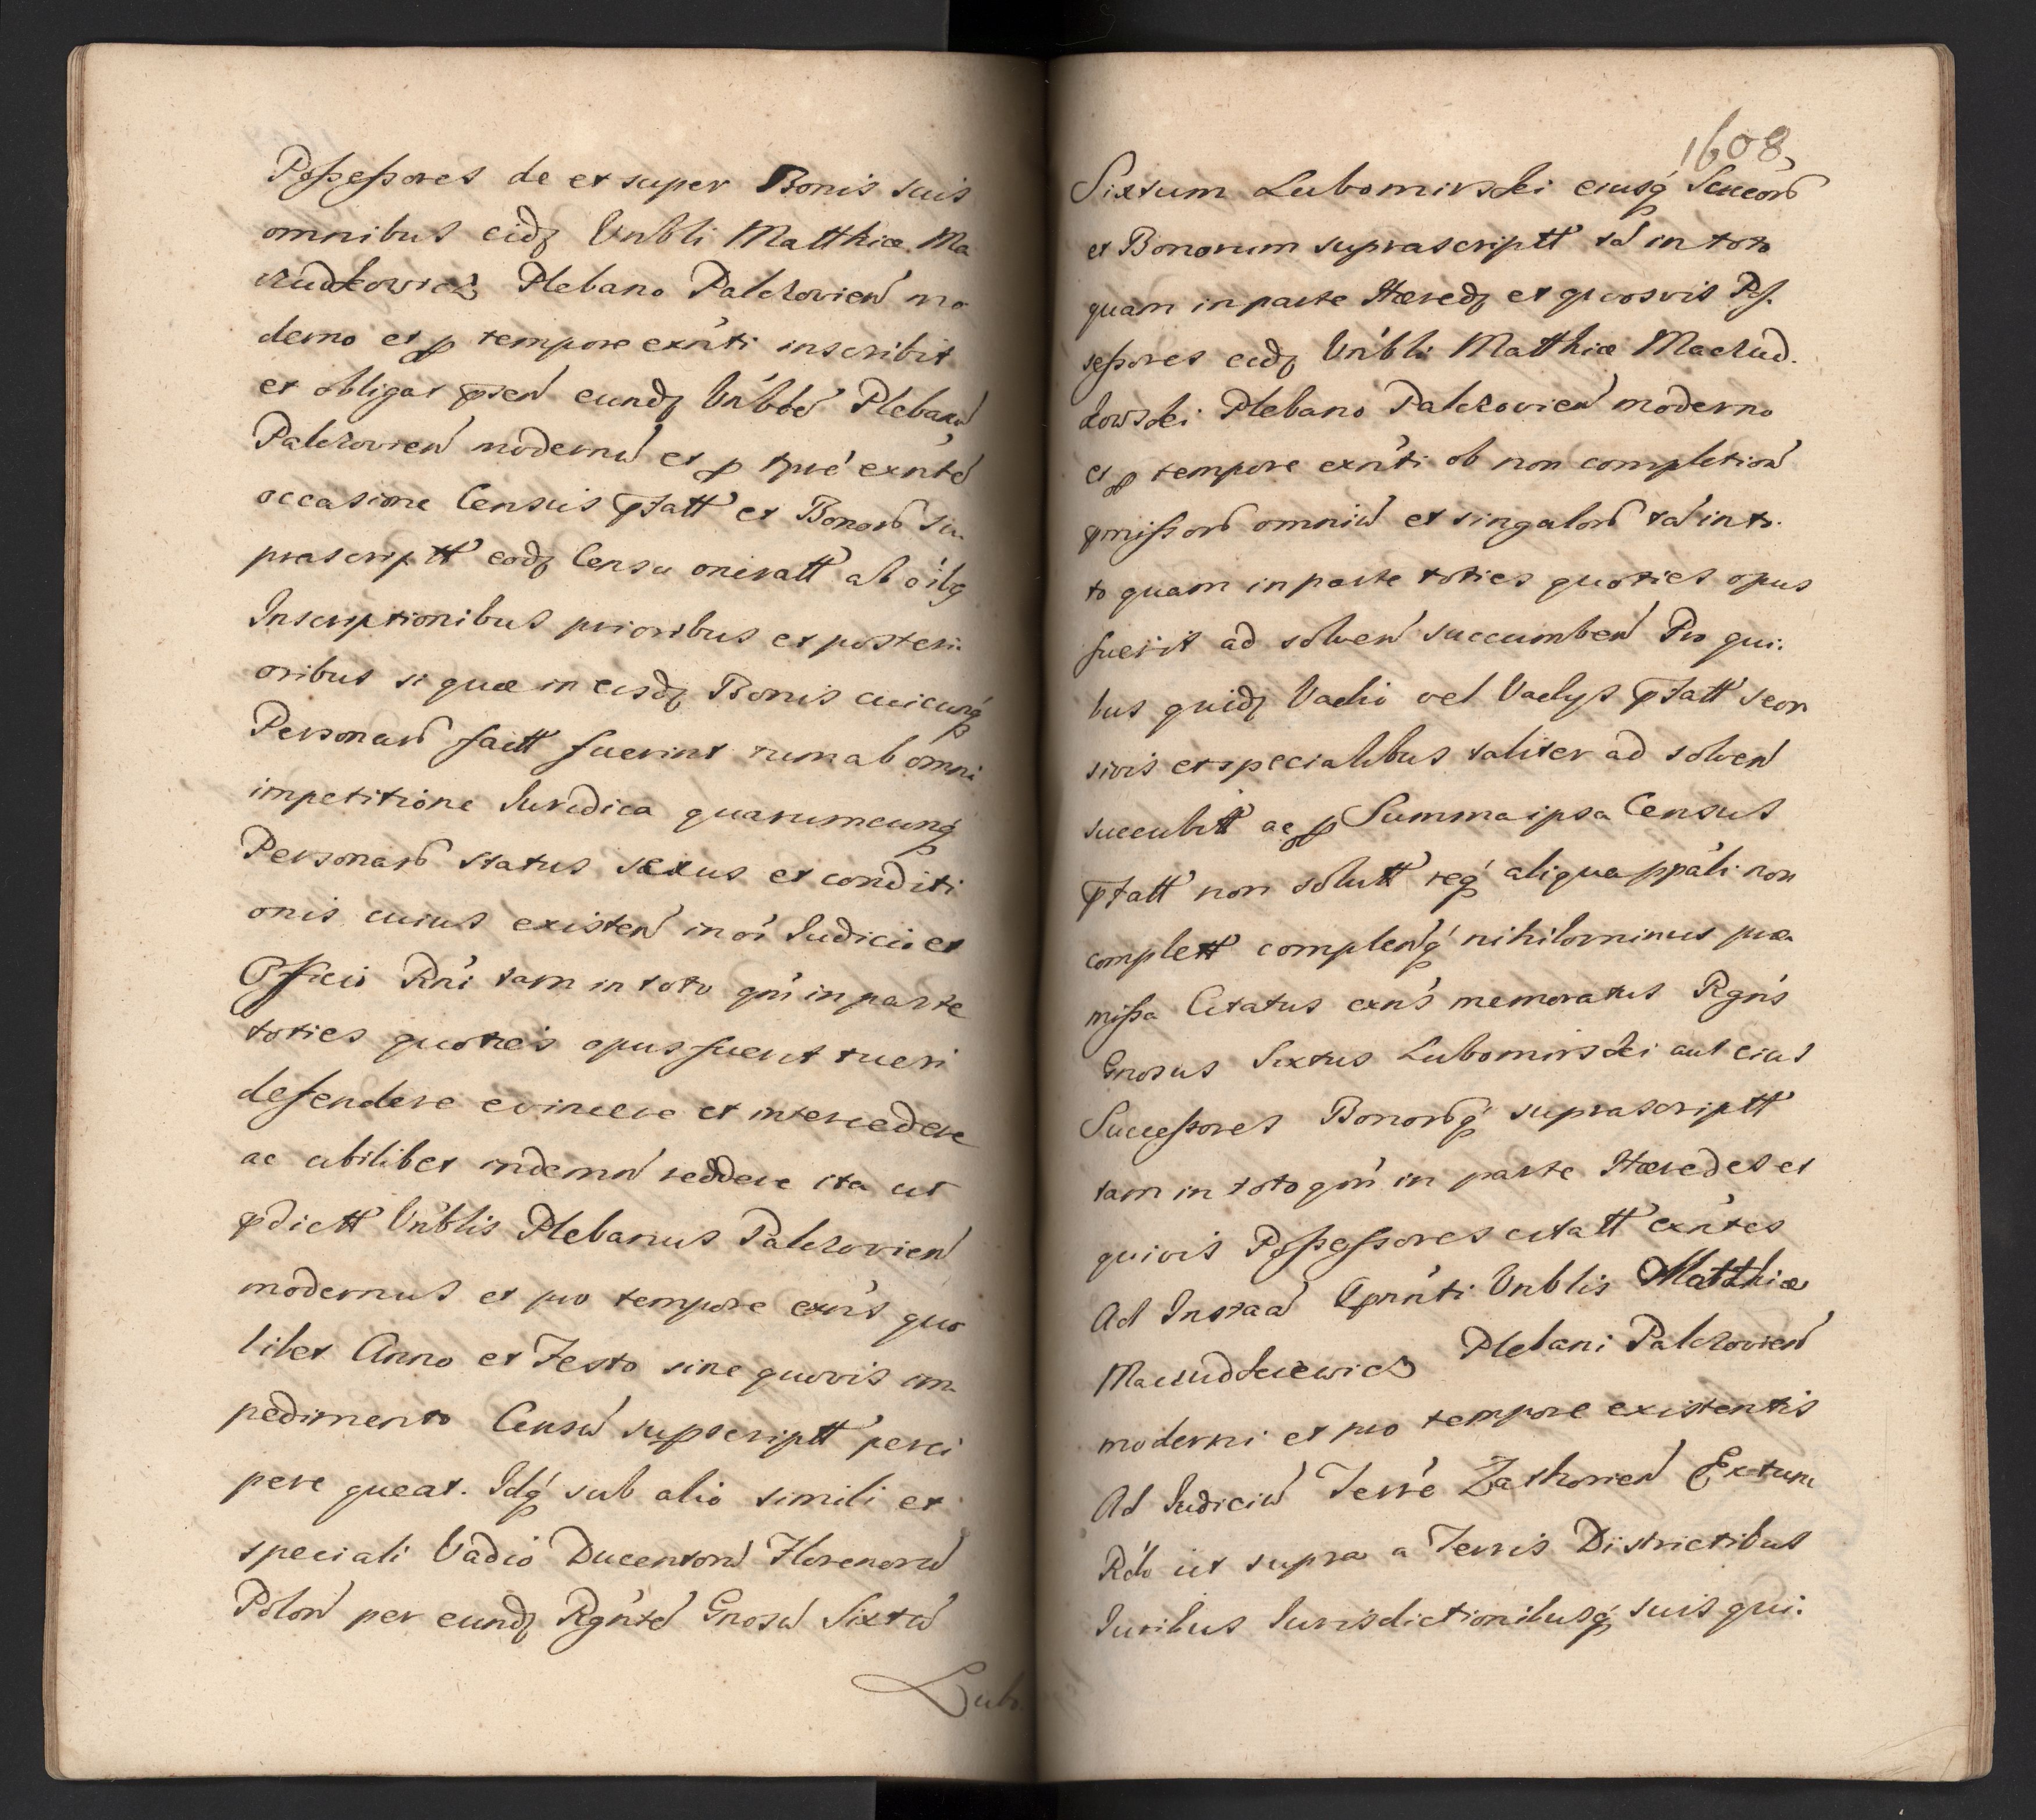 Possessores de et super Bonis suis
omnibus eidq Vnbli Matthiæ Ma
czudkowicz Plebano Palczovien̄ mo
derno et p tempore exn̄ti inscribit
et obligat psen̄ eundq Vn̄blē Plebanū
Palczovien̄ modernū et p tprē exn̄tē
occasione Censūs pfatt et Bonorū su
prascriptt eodq Censu oneratt ab oībq
Inscriptionibus prioribus et posteri:
oribus si quæ in eisdq Bonis cuicunq
Personarū factt fuerint tum ab omni
impetitione Juridica quarumcunq
Personarū status sexus et conditi
onis cuius existen̄ in oī Judicio et
Officio Rn̄i tam in toto qm̄ in parte
toties quoties opus fuerit tueri
defendere evincere et intercedere
ac ubilibet indemn̄ reddere ita ut
pdictt Vn̄blis Plebanus Palczovien̄
modernus et pro tempore exn̄s quo
libet Anno et Festo sine quovis im
pedimento Censū supscriptt perci
pere queat. Idq sub alio simili et
speciali Vadio Ducentorū Florenorū
Polon̄ per eundq Rgn̄tē Gnosū Sixtū
Lub.
1608
Sixtum Lubomirski eiusq Succorū
et Bonorum suprascriptt tā in toto
quam in parte Hæredq et quosvis Pos.
sessores eidq Vn̄bli Matthiæ Maczud.
kowski Plebano Palczovien̄ moderno
et p tempore exn̄ti ob non completion̄
pmissorū omniū et singulorū tā in to.
to quam in parte toties quoties opus
fuerit ad solven̄ succumben̄ Pro qui:
bus quidq Vadio vel Vadys pfatt seor
sivis et specialibus taliter ad solven̄
succubitt ac p Summa ipsa Censūs
pfatt non solutt req aliqua ppāli non
complett complenq nihilominus præ
missa Citatus exn̄s memoratus Rgn̄s
Gnosus Sixtus Lubomirski aut eius
Successores Bonorūq suprascriptt
tam in toto qm̄ in parte Hæredes et
quivis Possessores citatt exn̄tes
Ad Instaā pn̄nti Vnblis Matthiæ
Maczudkiewicz Plebani Palczovien̄
moderni et pro tempore existentis
Ad Judiciū Terrē Zathorien̄ Extunc
Rdo ut supra a Terris Districtibus
Juribus Jurisdictionibusq suis qui: